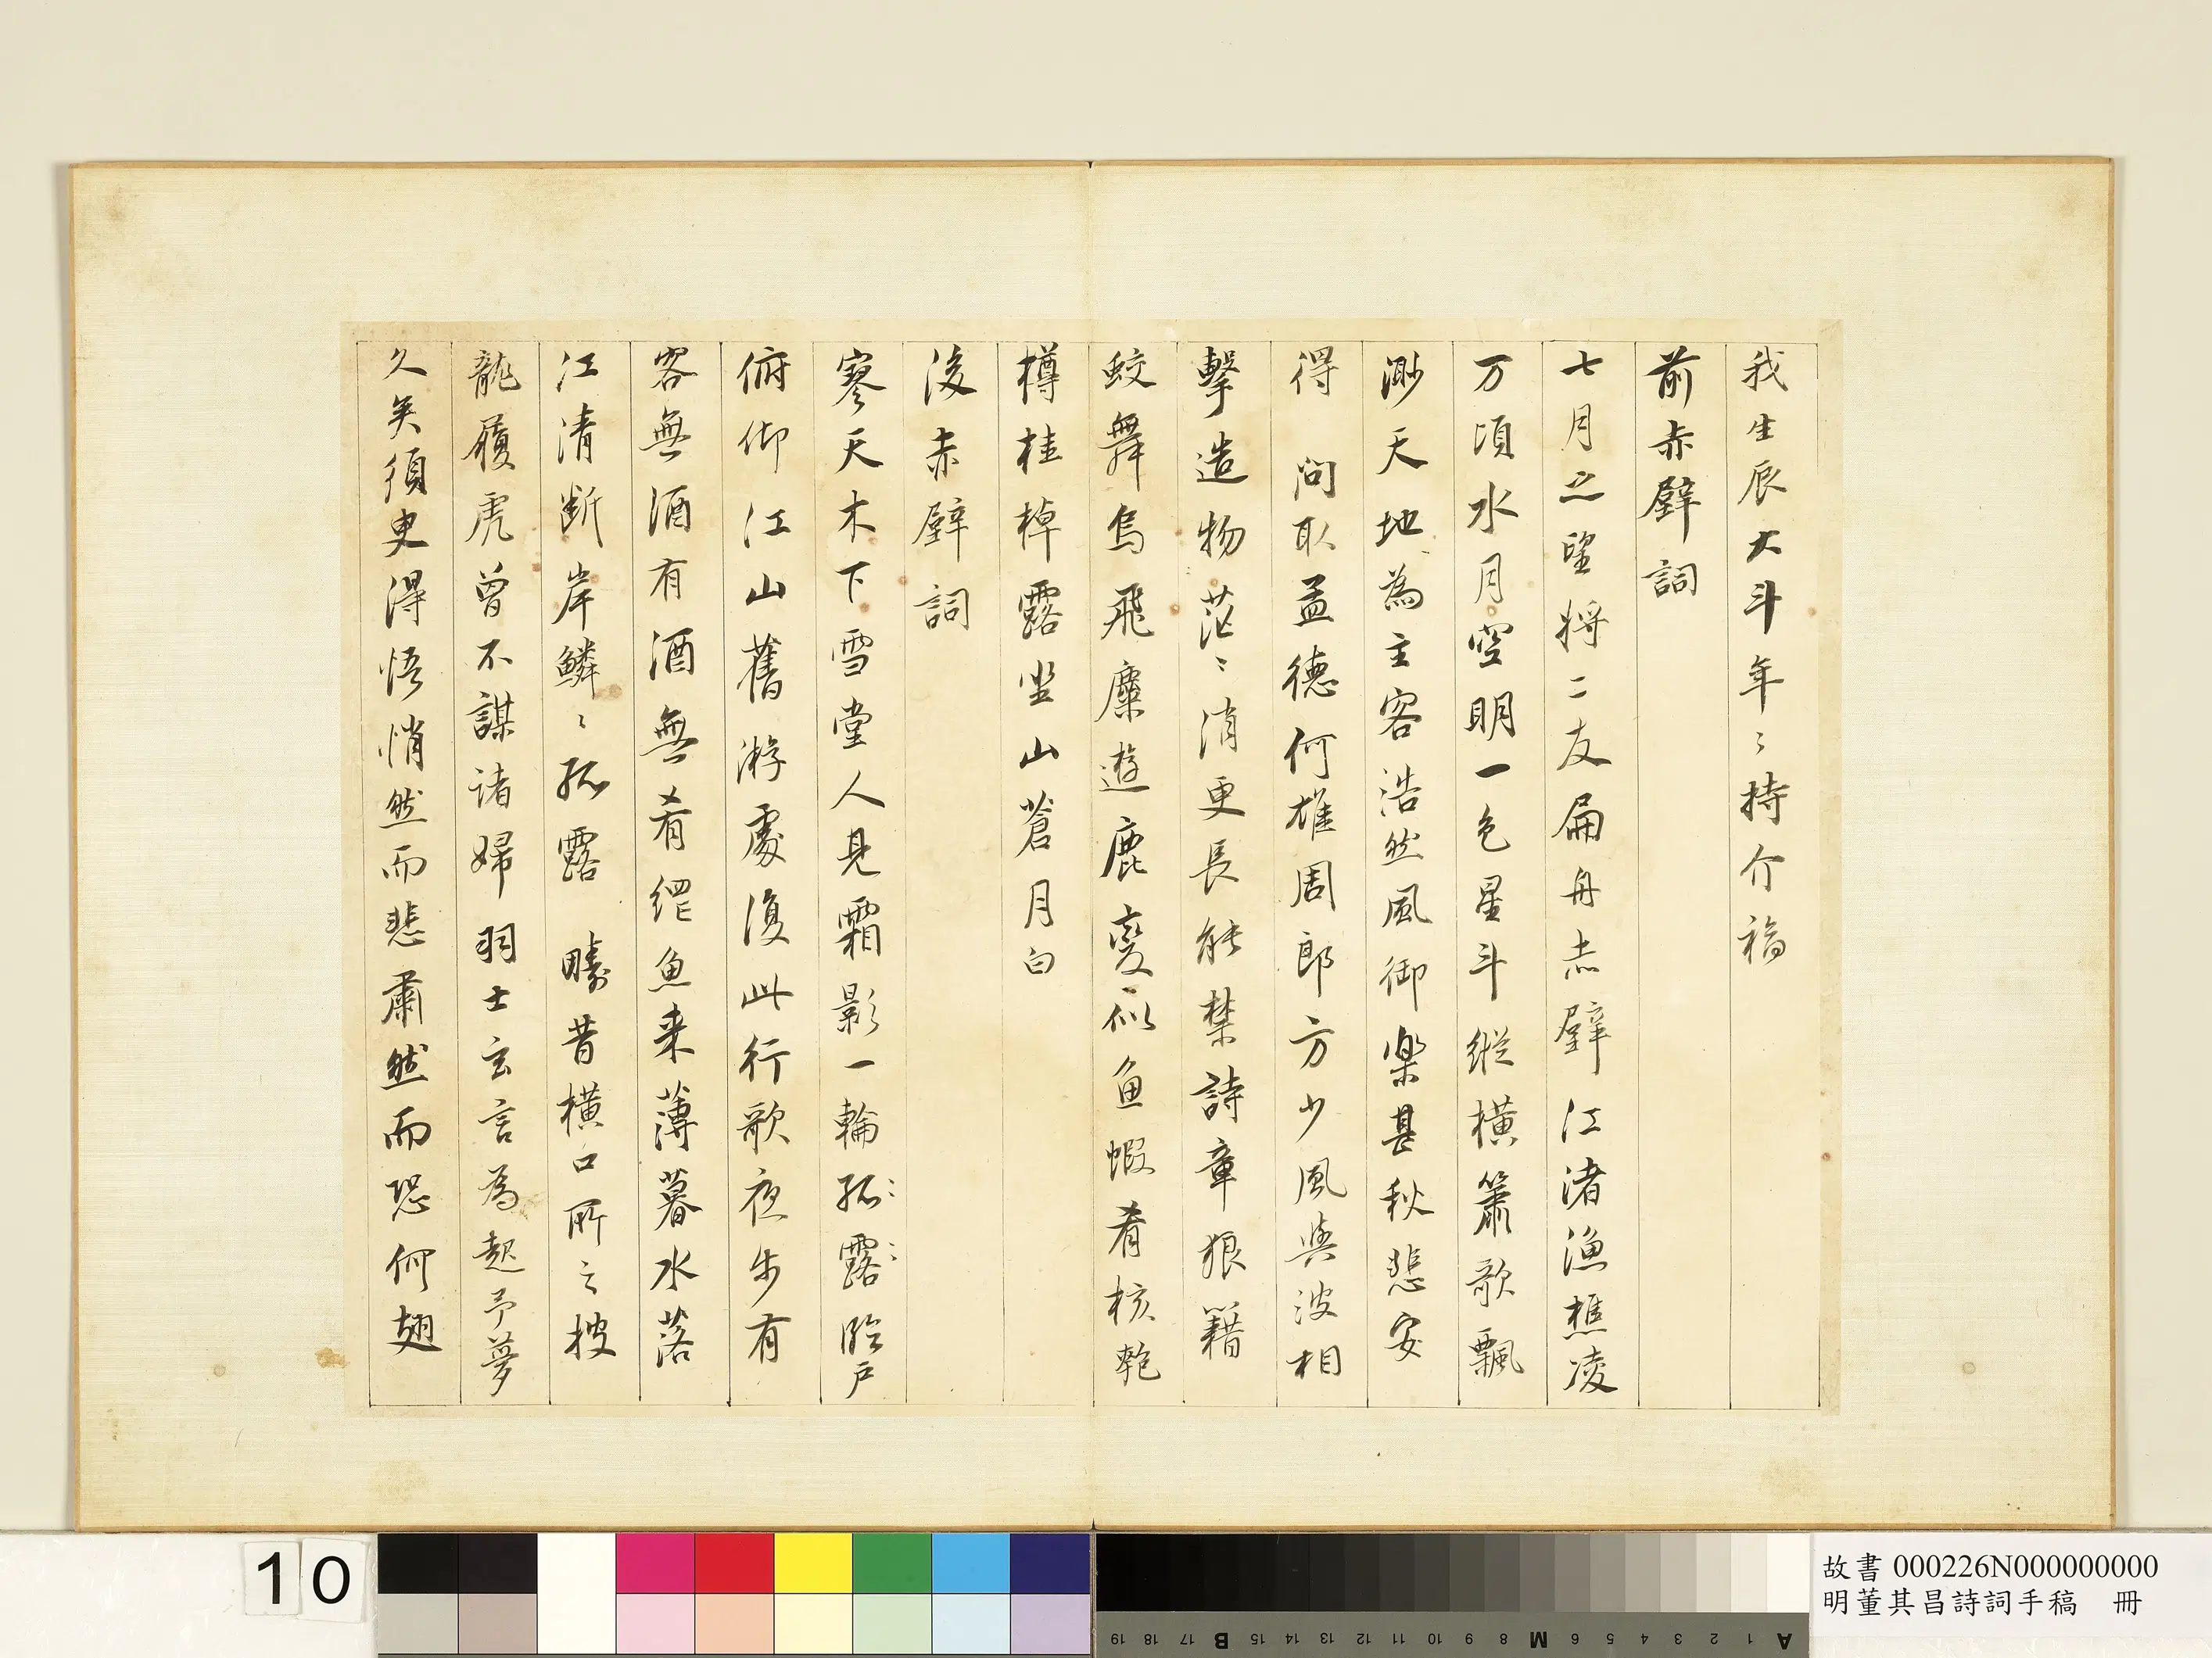 我生辰大斗年〻持介福
前赤壁詞
七月之望將二友扁舟赤壁江渚漁樵凌
万頃水月空明一色星斗縱橫簫歌飄
渺天地為主客浩然風御樂甚秋悲安
得　問取孟德何雄周郎方少風與波相
擊造物茫〻消更長能禁詩章狼籍
蛟舞烏飛麋遊鹿變似魚蝦肴核匏
樽桂棹露坐山蒼月白
後赤壁詞
寥天木下雪堂人見霜影一輪孤露臨戶
俯仰江山舊游處復此行歌夜步有
客無酒有酒無肴網魚来薄暮水落
江清断岸鱗〻孤露　疇昔橫口所之披
龍履虎曾不謀諸婦羽士玄言為起予夢
久矣須臾得悟悄然而悲肅然而恐何翅
10
故書 000226N000000000
明董其昌詩詞手稿　冊
A 1 2 3 4 5 6 M 8 9 10 11 12 13 14 15 B 17 18 19